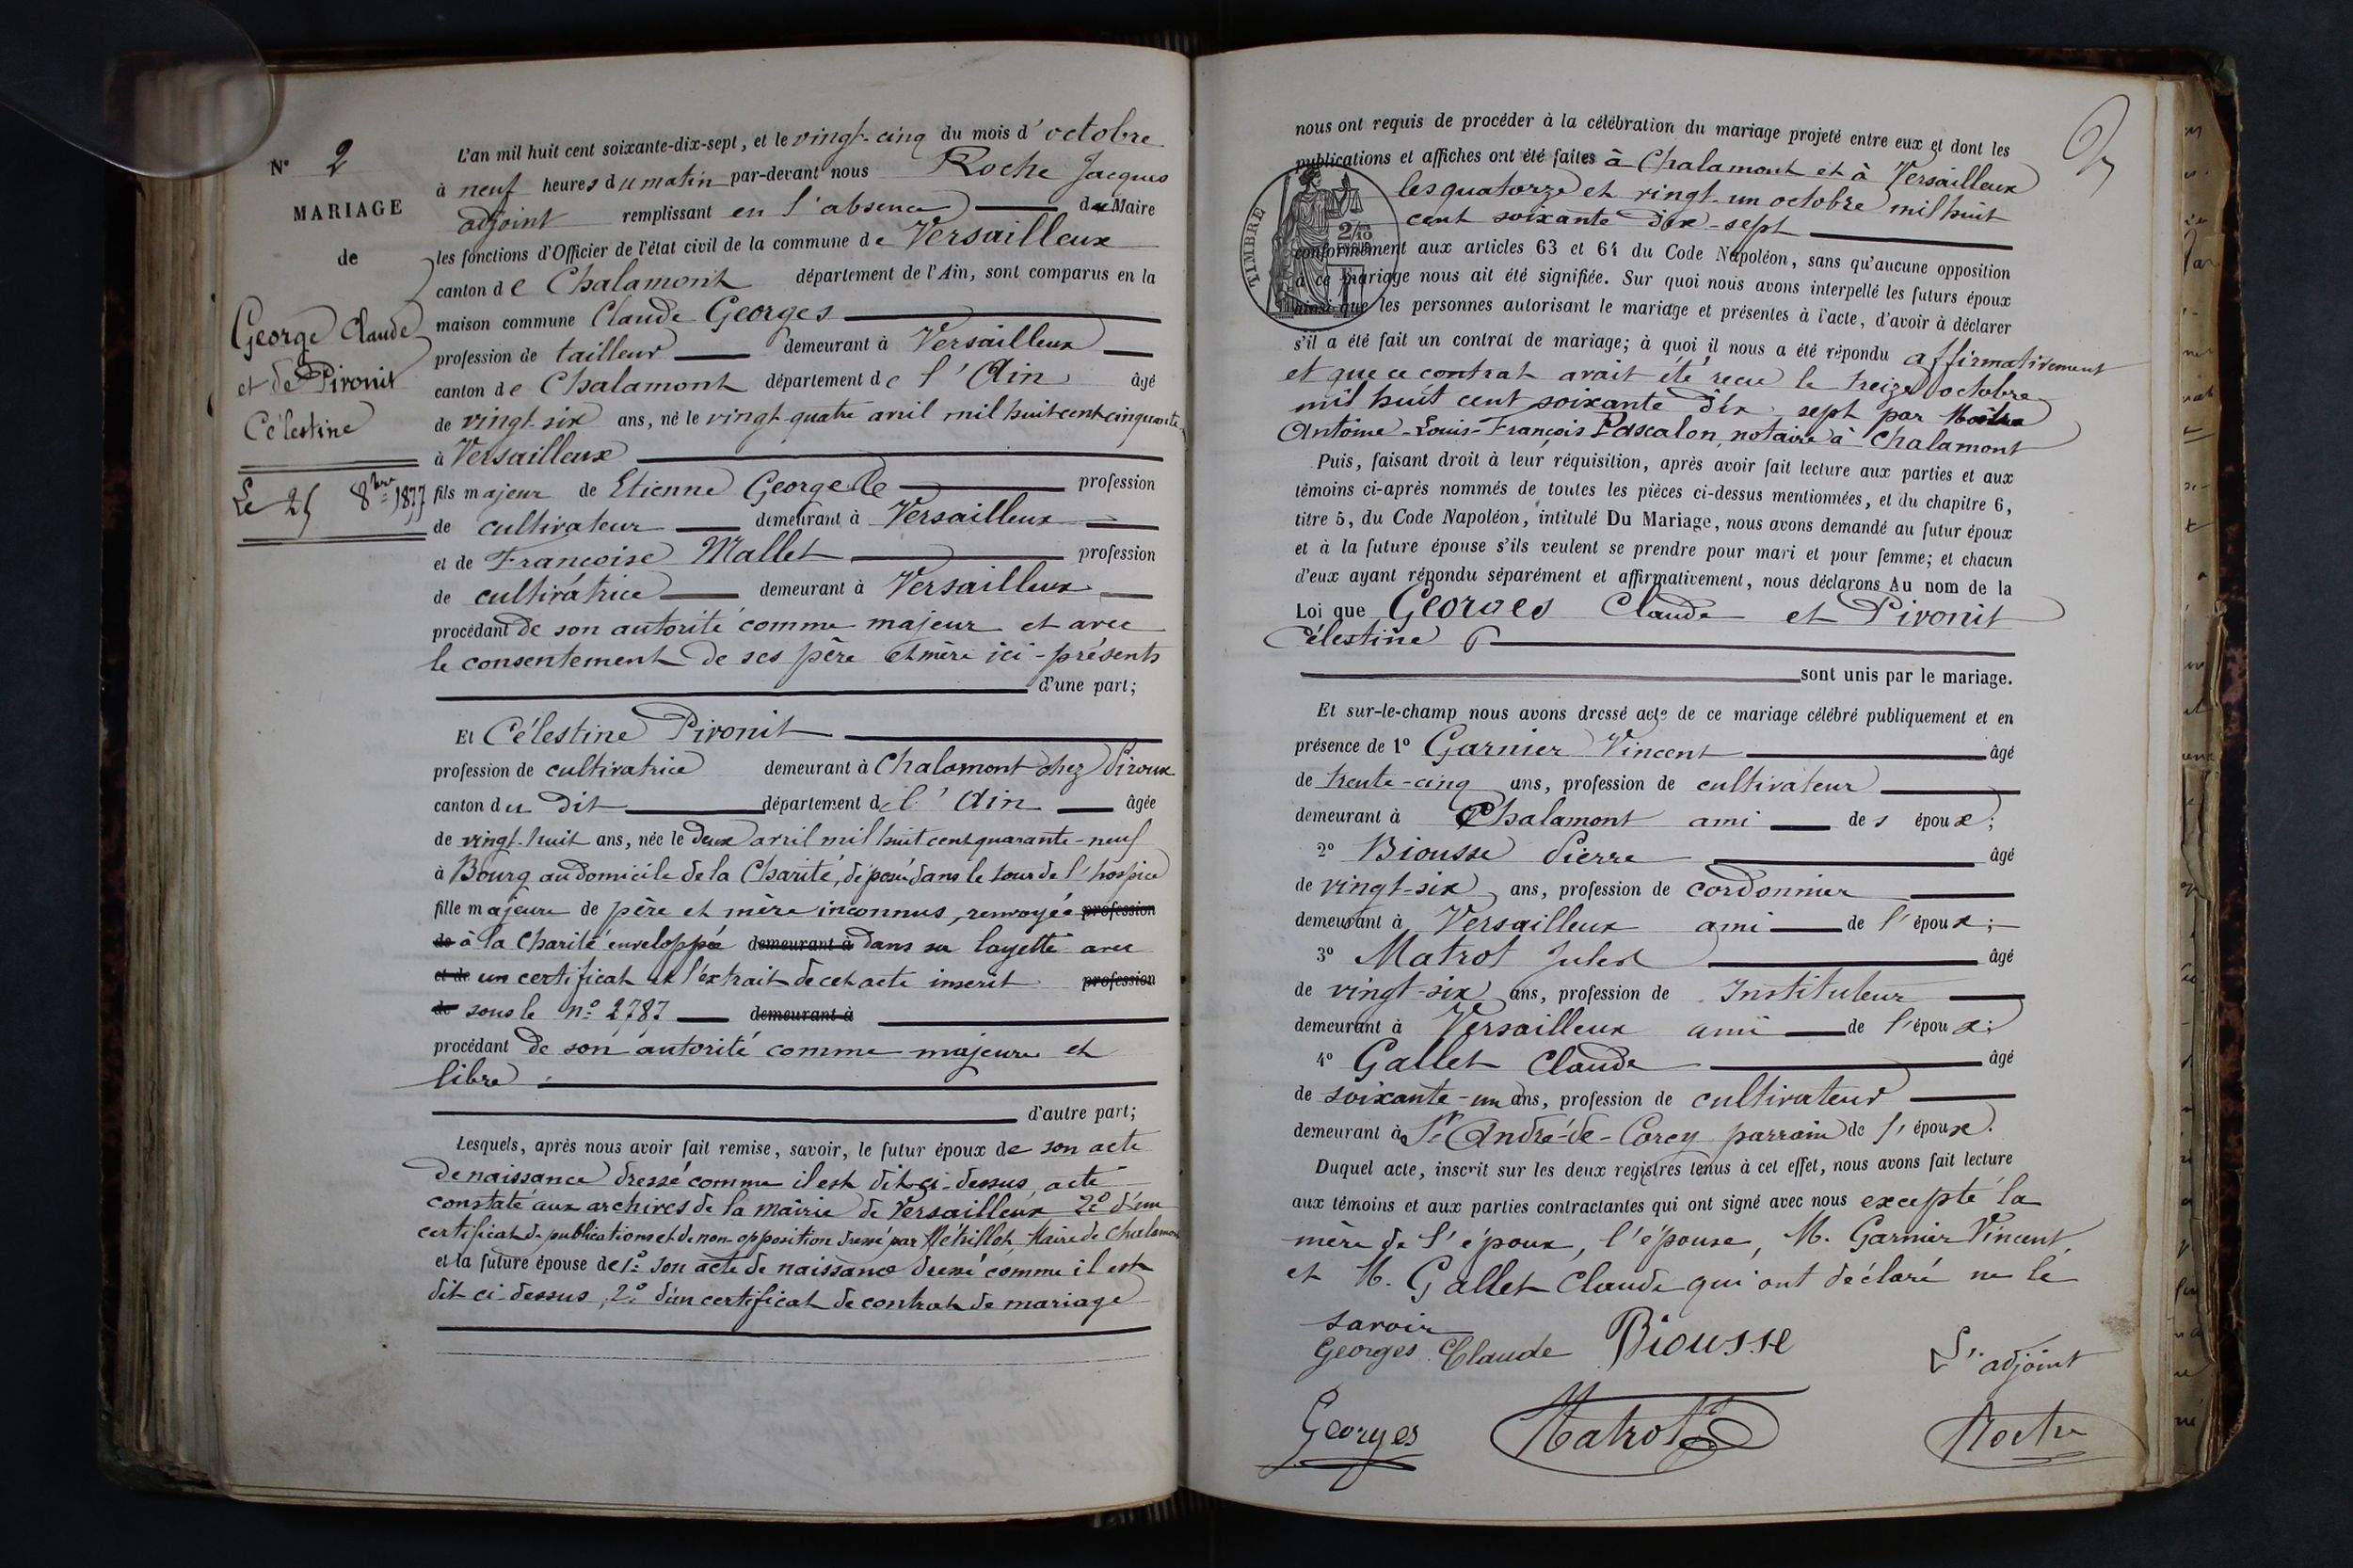 N° 2
MARIAGE
de
George Claude
et de Pironit
Célestine
Le 25 8bre 1877
L'an mil huit cent soixante-dix-sept, et le vingt-cinq du mois d'octobre
à neuf heures du matin par-devant nous Roche Jacques
adjoint remplissant en l'absence du Maire
les fonctions d'Officier de l'état civil de la commune de Versailleux
canton de Chalamont département de l'Ain, sont comparus en la
maison commune Claude Georges
profession de tailleur demeurant à Versailleux
canton de Chalamont département de l'Ain âgé
de vingt-six ans, né le vingt-quatre avril mil huit cent cinquante
à Versailleux
fils majeur de Etienne George profession
de cultivateur demeurant à Versailleux
et de Françoise Mallet profession
de cultivatrice demeurant à Versailleux
procédant de son autorité comme majeur et avec
le consentement de ses père et mère ici-présents
d'une part;
Et Célestine Pironit
profession de cultivatrice demeurant à Chalamont chez Piroux
canton du dit département de l'Ain âgée
de vingt-huit ans, née le deux avril mil huit cent quarante-neuf
à Bourg au domicile de la Charité, déposé dans le tour de l'hospice
fille majeure de père et mère inconnus, renvoyée profession
de à la Charité enveloppée demeurant à dans sa layette avec
et de un certificat et l'extrait de cet acte inscrit profession
de sous le n° 2787 demeurant à
procédant de son autorité comme majeure et
libre
d'autre part;
Lesquels, après nous avoir fait remise, savoir, le futur époux de son acte
de naissance dressé comme il est dit ci-dessus, acte
constaté aux archives de la mairie de Versailleux 2° d'un
certificat de publications et de non-opposition dressé par Maire de Chalamont
et la future épouse de 1° son acte de naissance dressé comme il est
dit ci-dessus, 2° d'un certificat de contrat de mariage
nous ont requis de procéder à la célébration du mariage projeté entre eux et dont les
publications et affiches ont été faites à Chalamont et à Versailleux
les quatorze et vingt-un octobre mil huit
cent soixante dix-sept
TIMBRE
2/10
conformément aux articles 63 et 64 du Code Napoléon, sans qu'aucune opposition
à ce mariage nous ait été signifiée. Sur quoi nous avons interpellé les futurs époux
ainsi que les personnes autorisant le mariage et présentes à l'acte, d'avoir à déclarer
s'il a été fait un contrat de mariage; à quoi il nous a été répondu affirmativement
et que ce contrat avait été reçu le treize octobre
mil huit cent soixante dix sept par Maître
Antoine-Louis-François Pascalon, notaire à Chalamont
Puis, faisant droit à leur réquisition, après avoir fait lecture aux parties et aux
témoins ci-après nommés de toutes les pièces ci-dessus mentionnées, et du chapitre 6,
titre 5, du Code Napoléon, intitulé Du Mariage, nous avons demandé au futur époux
et à la future épouse s'ils veulent se prendre pour mari et pour femme; et chacun
d'eux ayant répondu séparément et affirmativement, nous déclarons Au nom de la
Loi que Georges Claude et Pironit
Célestine
sont unis par le mariage.
Et sur-le-champ nous avons dressé acte de ce mariage célébré publiquement et en
présence de 1° Garnier Vincent âgé
de trente-cinq ans, profession de cultivateur
demeurant à Chalamont ami des époux;
2° Biousse Pierre âgé
de vingt-six ans, profession de cordonnier
demeurant à Versailleux ami de l'époux;
3° Matrot Jules âgé
de vingt-six ans, profession de Instituteur
demeurant à Versailleux ami de l'époux;
4° Gallet Claude âgé
de soixante-un ans, profession de cultivateur
demeurant à St André-de-Corcy parrain de l'épouse.
Duquel acte, inscrit sur les deux registres tenus à cet effet, nous avons fait lecture
aux témoins et aux parties contractantes qui ont signé avec nous excepté la
mère de l'époux, l'épouse, M. Garnier Vincent,
et M. Gallet Claude qui ont déclaré ne le
savoir
Georges Claude Biousse L'adjoint
Georges Matrot Roche